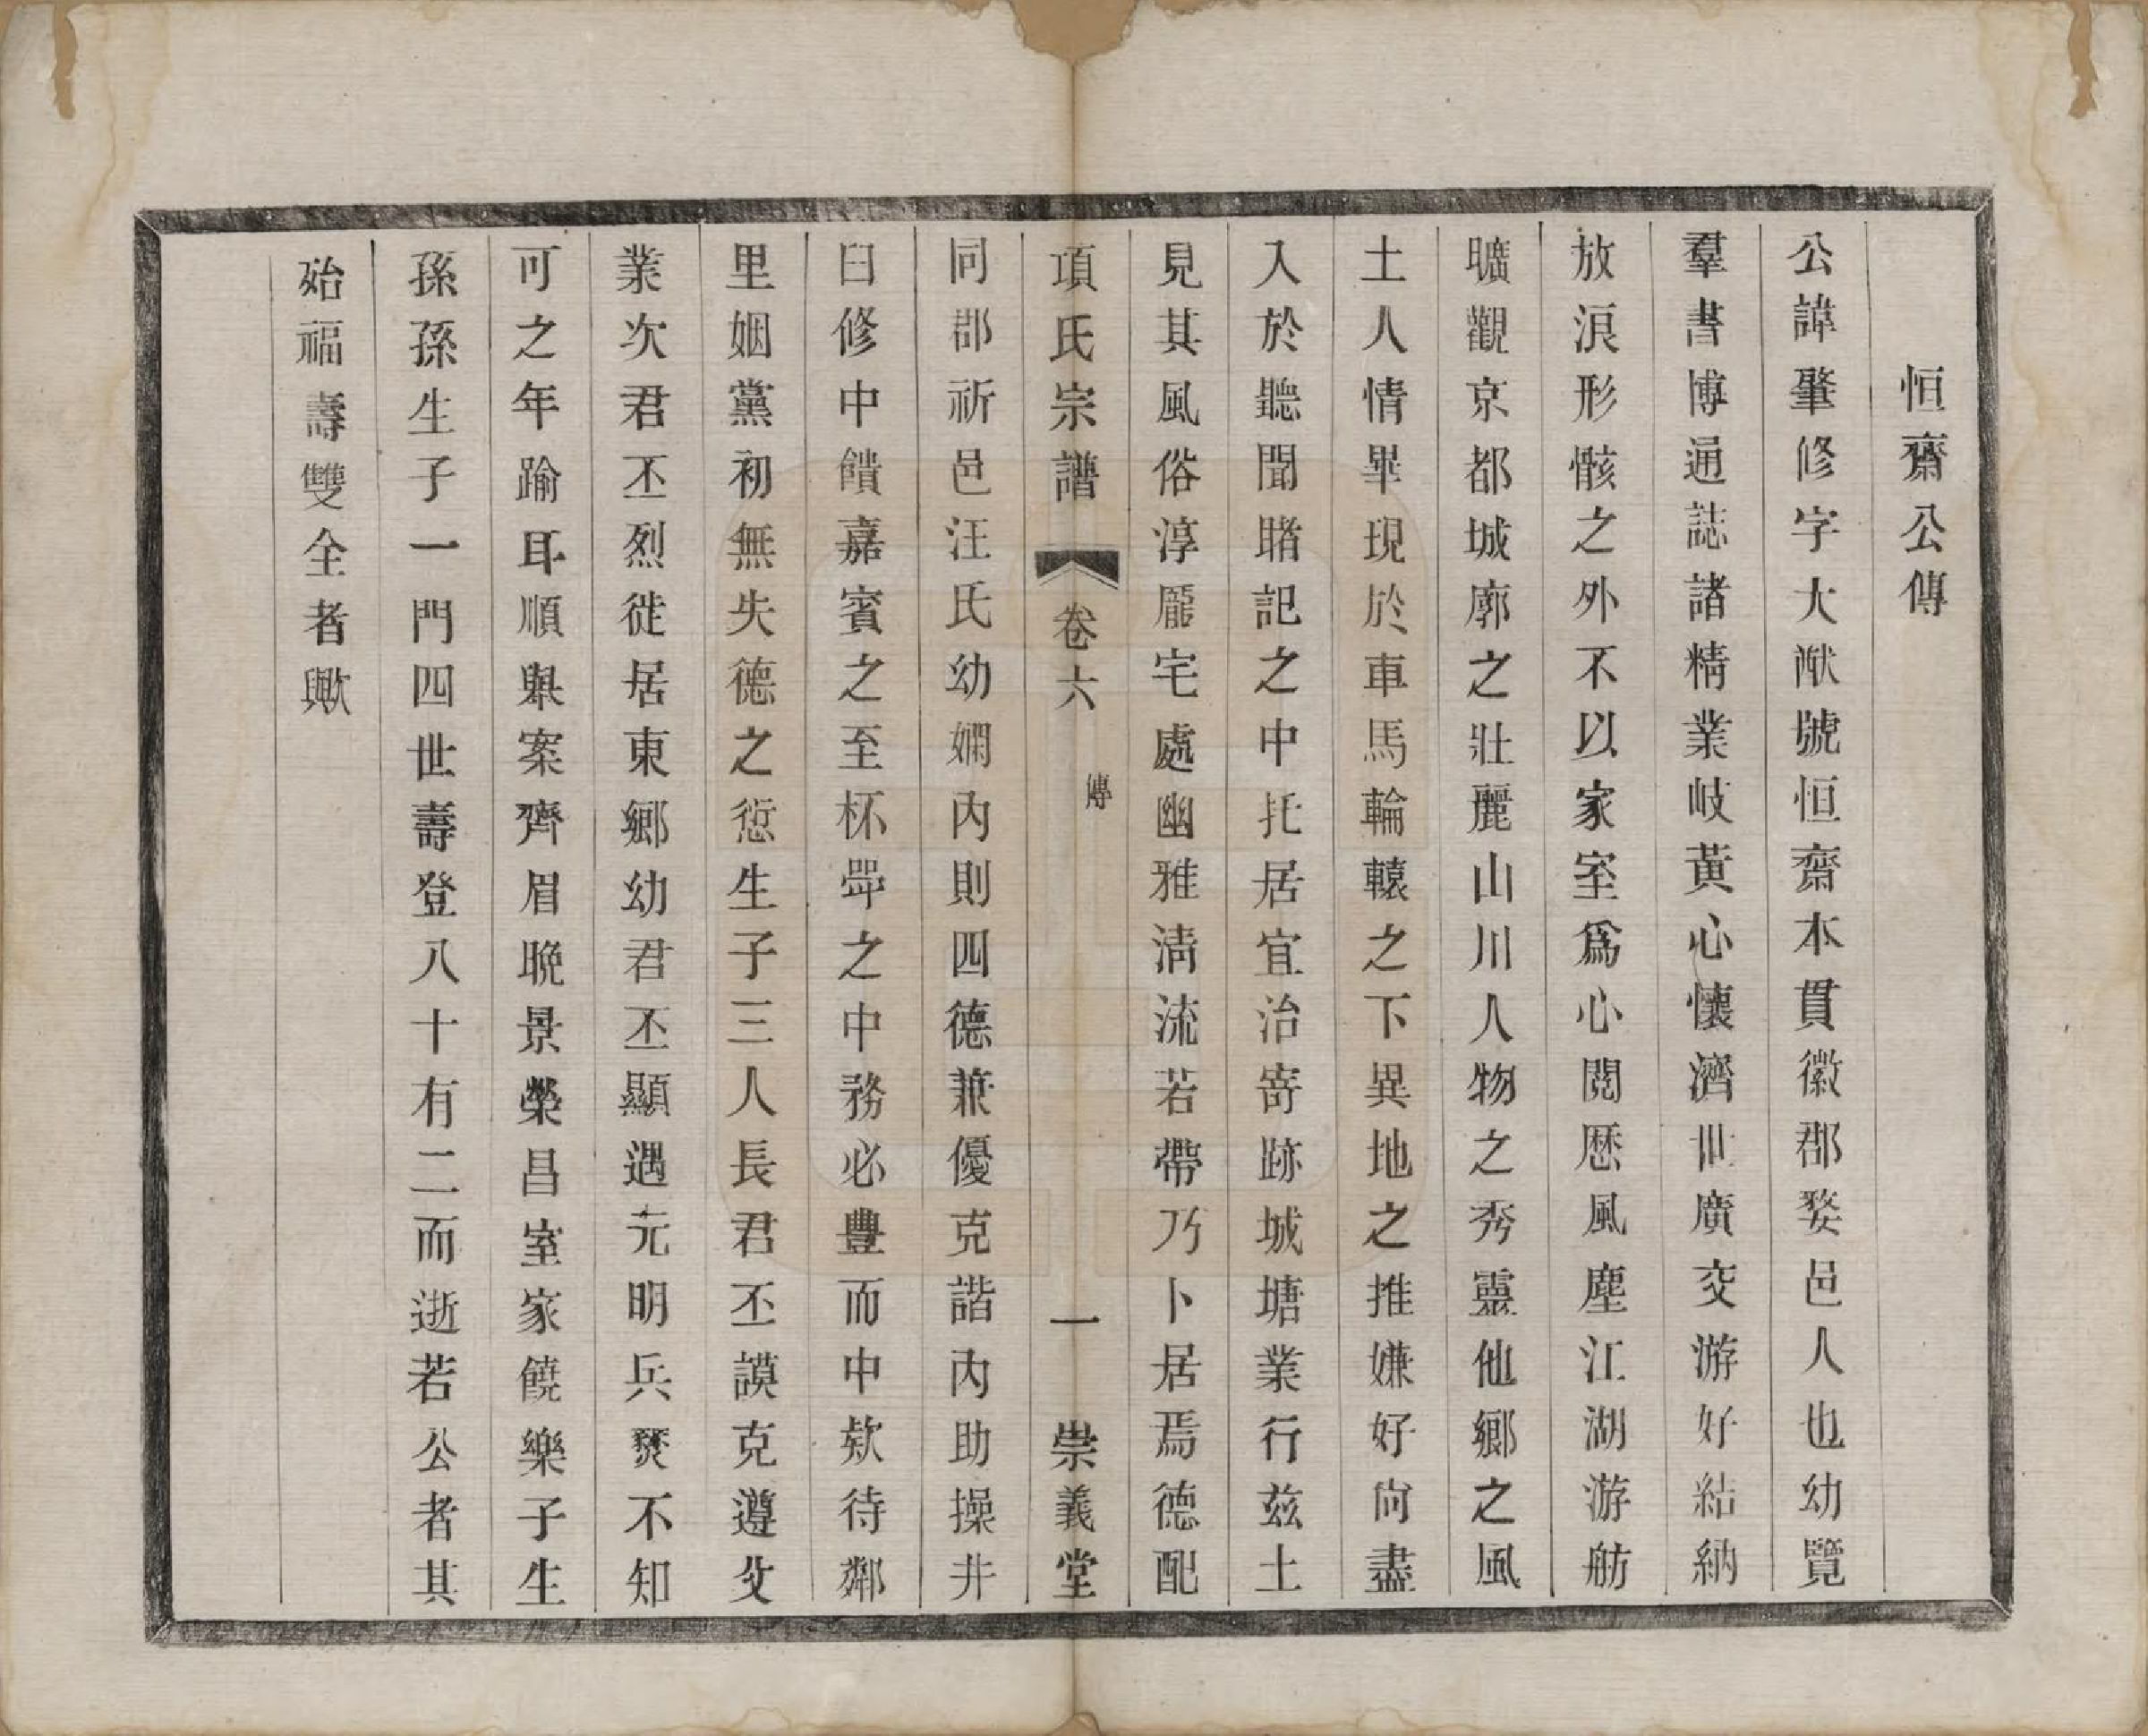 恒齋公傳
公諱肇修字大猷號恒齋本貫徽郡婺邑人也幼覽
羣書博通誌諸精業岐黃心懷濟世廣交游好結納
放浪形骸之外不以家室爲心閱歷風塵江湖游舫
曠觀京都城廓之壯麗山川人物之秀靈仙鄉之風
土人情畢現於車馬輪轅之下異地之推嫌好向盡
入於聽聞睹記之中托居宜治寄跡城塘業行兹土
見其風俗淳龐宅處幽雅清流若帶乃卜居焉德配
項氏宗譜 卷六 傳 一 崇義堂
同郡祈邑汪氏幼嫻内則四德兼優克諧内助操井
臼修中饋嘉賓之至杯斝之中務必豐而中欵待鄰
里姻黨初無失德之愆生子三人長君丕謨克遵父
業次君丕烈徙居東鄉幼君丕顯遇元明兵燹不知
可之年踰耳順舉案齊眉晚景榮昌室家饒樂子生
孫孫生子一門四世壽登八十有二而逝若公者其
殆福壽雙全者歟